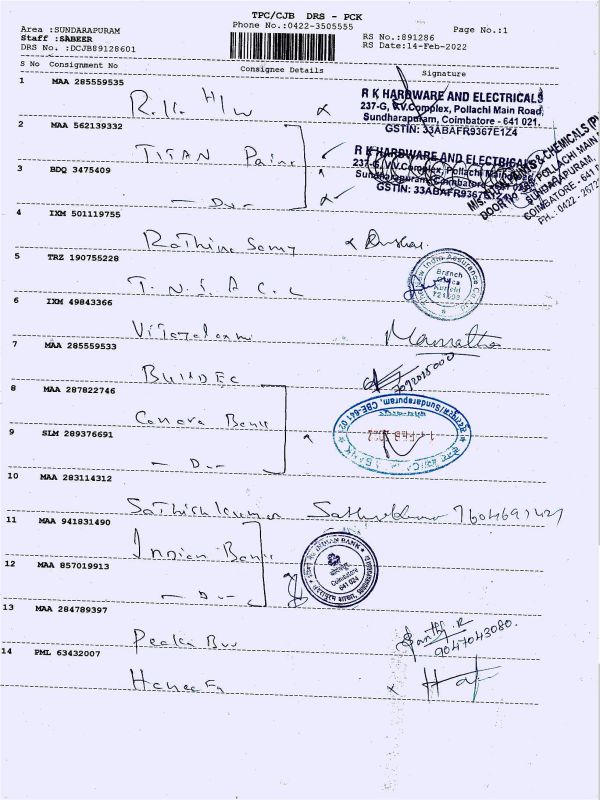 TPC/CJB DRS - PCK
Phone No.:0422-3505555
Page No.:1
Area :SUNDARAPURAM
Staff :SABEER
DRS No. :DCJB89128601
RS No.:891286
RS Date:14-Feb-2022
S No Consignment No Consignee Details Signature
1 MAA 285559535
R.K. H/W x
R K HARDWARE AND ELECTRICALS
237-G, R.V.Complex, Pollachi Main Road,
Sundharapuram, Coimbatore - 641 021.
GSTIN: 33ABAFR9367E1Z4
2 MAA 562139332
TITAN Paint
R K HARDWARE AND ELECTRICALS
237-G, R.V.Complex, Pollachi Main Road,
Sundharapuram, Coimbatore
GSTIN: 33ABAFR936
PAINTS & CHEMICALS (P)
POLLACHI MAIN
SUNDARAPURAM,
COIMBATORE - 641
PH.: 0422 - 2672
3 BDQ 3475409
- Do - x
4 IXM 501119755
Rathina Samy x
5 TRZ 190755228
T. N. I. A C. L
New India Assurance Co
Branch
Office
721603
6 IXM 49843366
Vijayalaxmi Mamatha
7 MAA 285559533
BUNDEC
8 MAA 287822746
Canara Bank
Sundarapuram, CBE-641 02
14 FEB 2022
BANK
9 SLM 289376691
- Do -
10 MAA 283114312
Sathishkumar
11 MAA 941831490
Indian Bank
INDIAN BANK
Coimbatore
641 024
12 MAA 857019913
- Do -
13 MAA 284789397
9047043080.
14 PML 63432007
Haneefa x